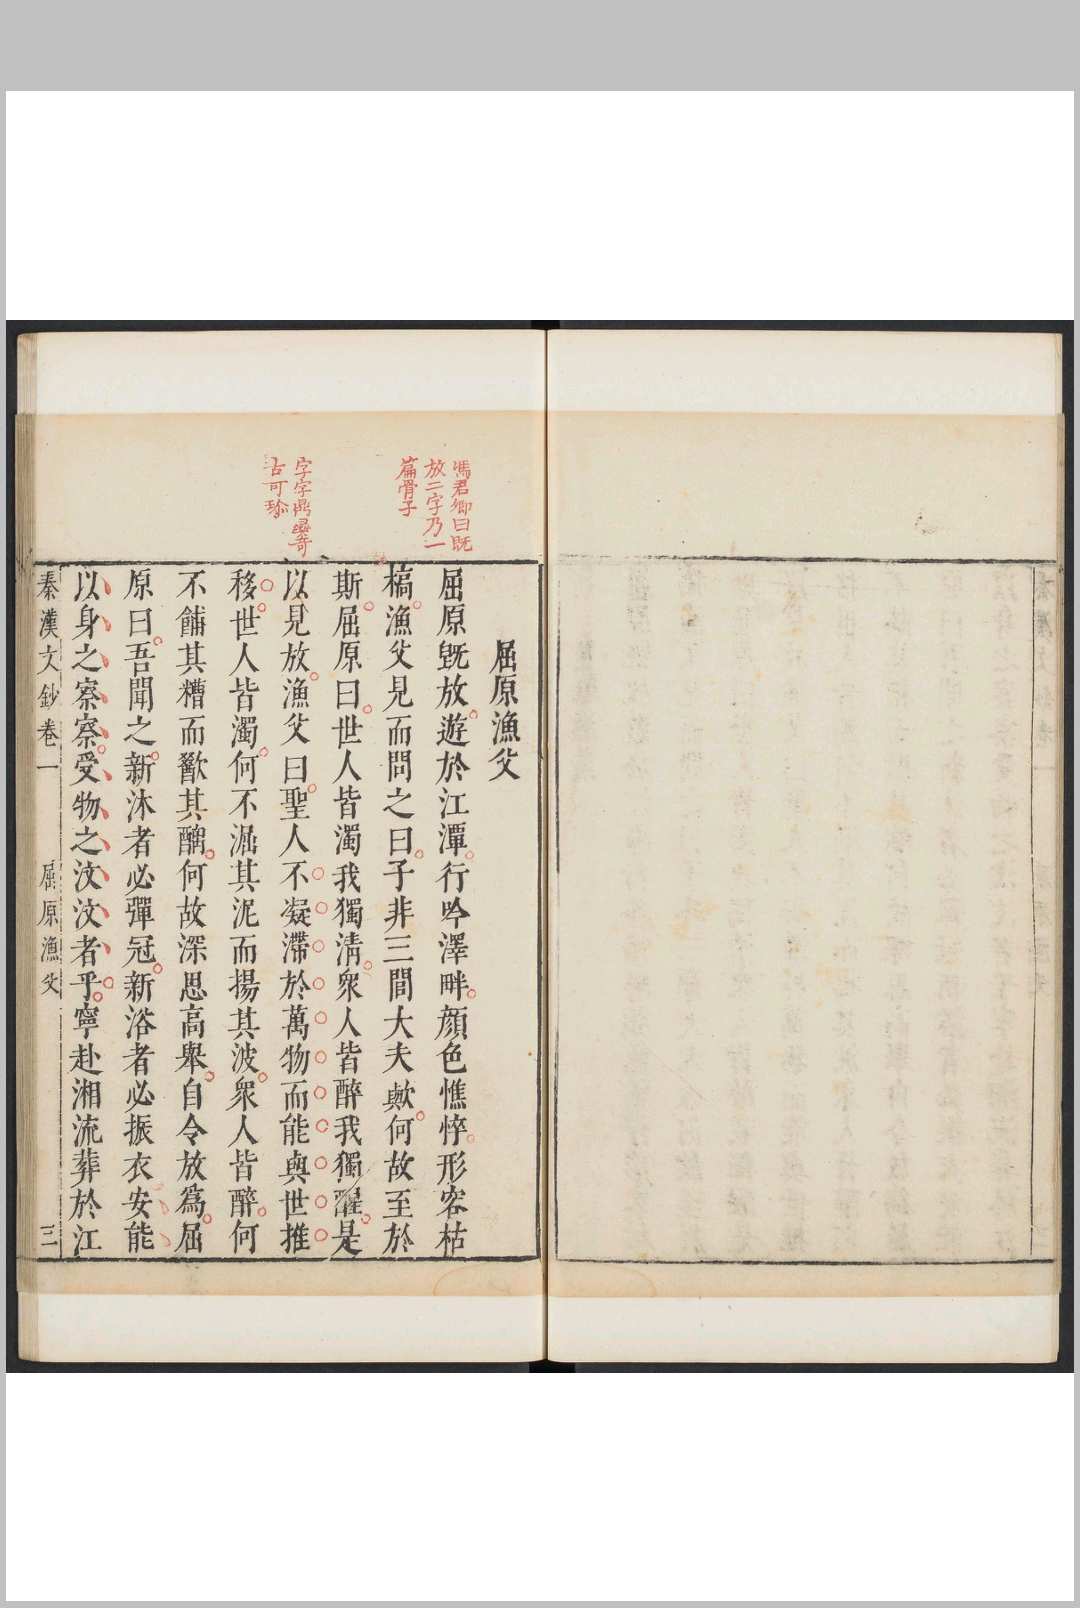 馮君卿曰既
放二字乃一
篇骨子
字字鼎彝奇
古可珍
屈原漁父
屈原旣放遊於江潭行吟澤畔顏色憔悴形容枯
槁漁父見而問之曰子非三閭大夫歟何故至於
斯屈原曰世人皆濁我獨淸衆人皆醉我獨醒是
以見放漁父曰聖人不凝滯於萬物而能與世推
移世人皆濁何不淈其泥而揚其波衆人皆醉何
不餔其糟而歠其醨何故深思高舉自令放爲屈
原曰吾聞之新沐者必彈冠新浴者必振衣安能
以身之察察受物之汶汶者乎寧赴湘流葬於江
秦漢文鈔卷一
屈原漁父
三